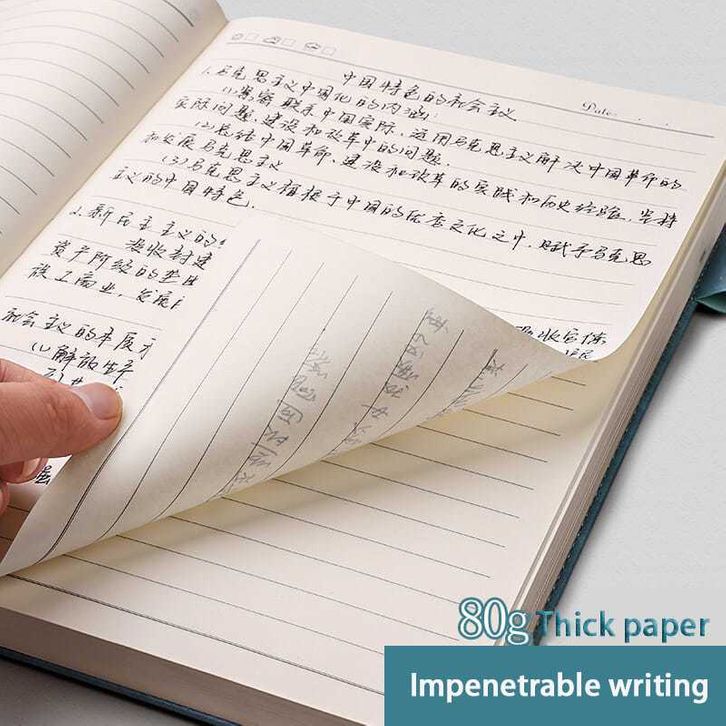 Date:
中国特色的社会主义
1.马克思主义中国化的内涵:
(1)紧密联系中国实际,运用马克思主义解决中国革命的
实际问题,建设和改革中的问题.
(2)总结中国革命,建设和改革的实践和历史经验,坚持
和发展马克思主义
(3)马克思主义植根于中国的优秀文化之中,赋予马克思
主义的中国特色.
2.新民主主义的
没收封建 没收官僚
资产阶级的
工商业,发展
社会主义的本质
(1)解放生产
80g Thick paper
Impenetrable writing